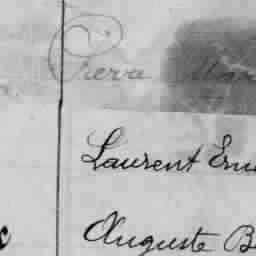 Pierre
Laurent Erne
Auguste B